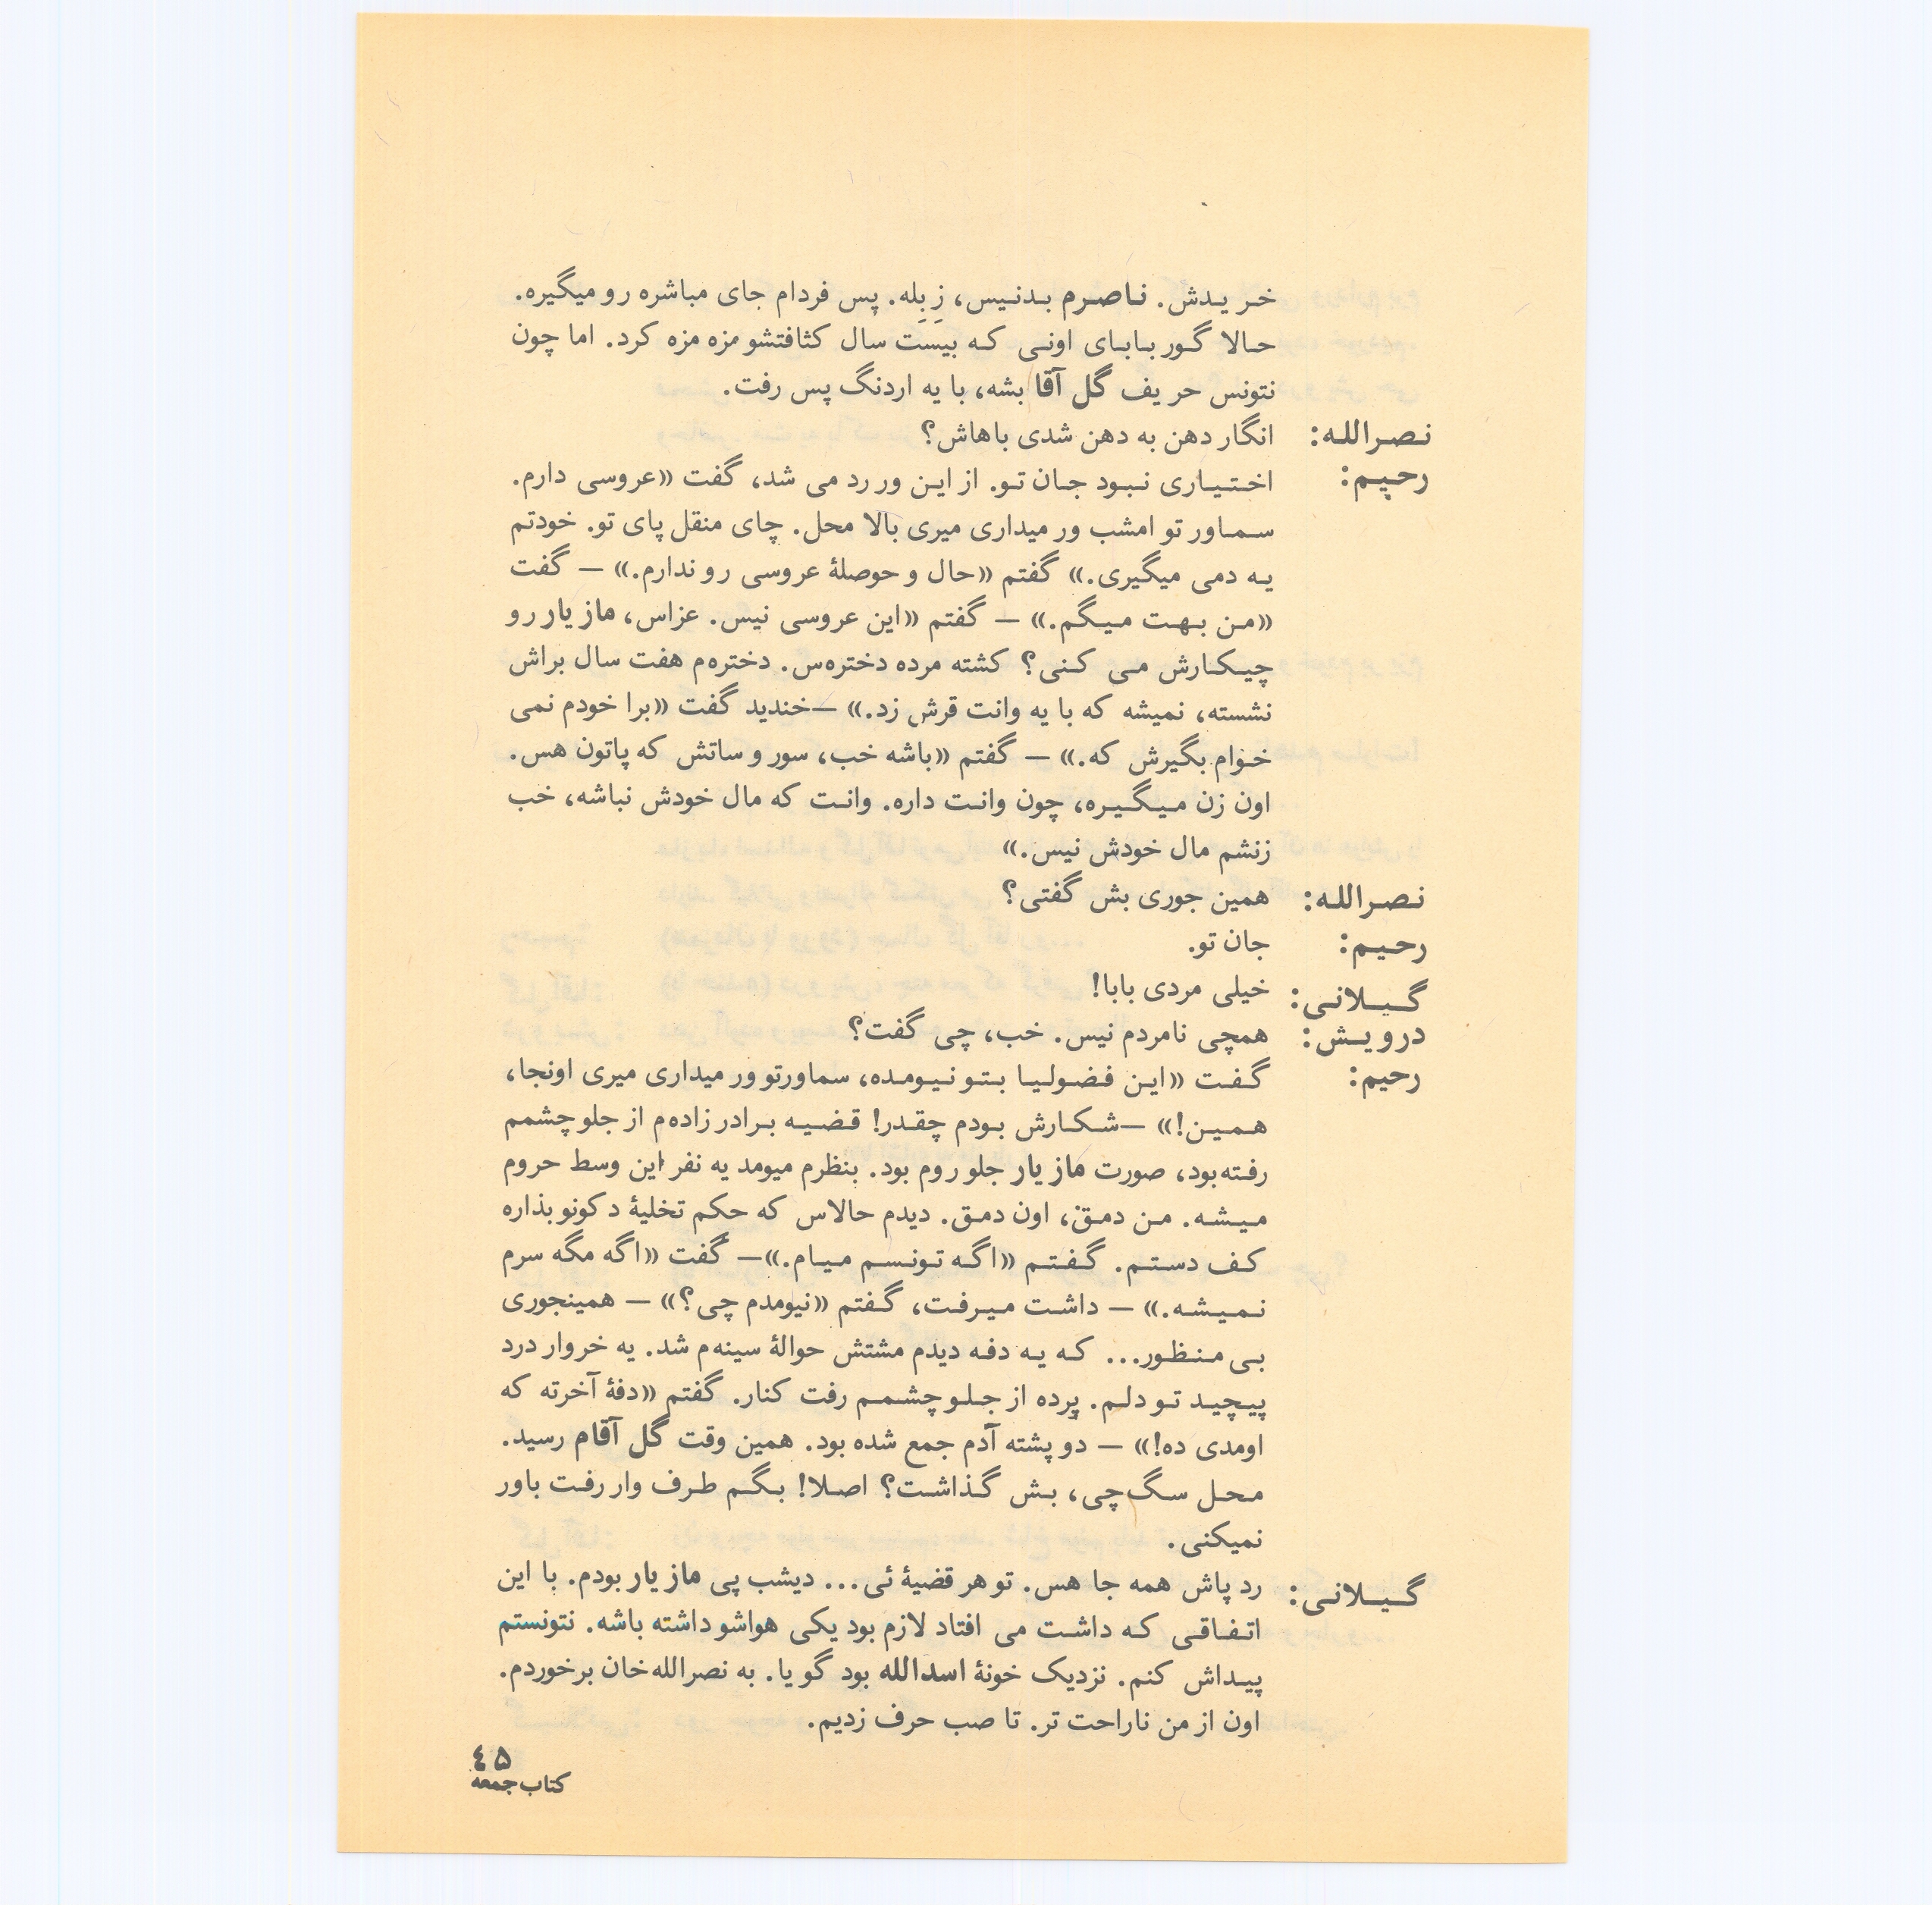 خریدش. ناصرم بدنیس، زِبِله. پس فردام جای مباشره رو میگیره.
حالا گور بابای اونی که بیسَت سال کثافتشو مزه مزه کرد. اما چون
نتونس حریف گل آقا بشه، با یه اردنگ پس رفت.
نصرالله: انگار دهن به دهن شدی باهاش؟
رحیم: اختیاری نبود جان تو. از این ور رد می شد، گفت «عروسی دارم.
سماور تو امشب ور میداری میری بالا محل. چای منقل پای تو. خودتم
یه دمی میگیری.» گفتم «حال و حوصلهٔ عروسی رو ندارم.» — گفت
«من بهت میگم.» — گفتم «این عروسی نیس. عزاس، مازیار رو
چیکارش می کنی؟ کشته مرده دختره‌س. دختره‌م هفت سال براش
نشسته، نمیشه که با یه وانت قرش زد.» —خندید گفت «برا خودم نمی
خوام بگیرش که.» — گفتم «باشه خب، سور و ساتش که پاتون هس.
اون زن میگیره، چون وانت داره. وانت که مال خودش نباشه، خب
زنشم مال خودش نیس.»
نصرالله: همین جوری بش گفتی؟
رحیم: جان تو.
گیلانی: خیلی مردی بابا!
درویش: همچی نامردم نیس. خب، چی گفت؟
رحیم: گفت «این فضولیا بتو نیومده، سماورتو ور میداری میری اونجا،
همین!» —شکارش بودم چقدر! قضیه برادر زاده‌م از جلو چشمم
رفته‌بود، صورت مازیار جلو روم بود. بنظرم میومد یه نفر این وسط حروم
میشه. من دمق، اون دمق. دیدم حالاس که حکم تخلیهٔ دکونو بذاره
کف دستم. گفتم «اگه تونسم میام.»— گفت «اگه مگه سرم
نمیشه.» — داشت میرفت، گفتم «نیومدم چی؟» — همینجوری
بی منظور... که یه دفه دیدم مشتش حوالهٔ سینه‌م شد. یه خروار درد
پیچید تو دلم. پرده از جلو چشمم رفت کنار. گفتم «دفهٔ آخرته که
اومدی ده!» — دو پشته آدم جمع شده بود. همین وقت گل آقام رسید.
محل سگ‌چی، بش گذاشت؟ اصلا! بگم طرف وار رفت باور
نمیکنی.
گیلانی: رد پاش همه جا هس. تو هر قضیهٔ ئی... دیشب پی مازیار بودم. با این
اتفاقی که داشت می افتاد لازم بود یکی هواشو داشته باشه. نتونستم
پیداش کنم. نزدیک خونهٔ اسدالله بود گویا. به نصرالله‌خان برخوردم.
اون از من ناراحت تر. تا صب حرف زدیم.
۴۵
کتاب جمعه